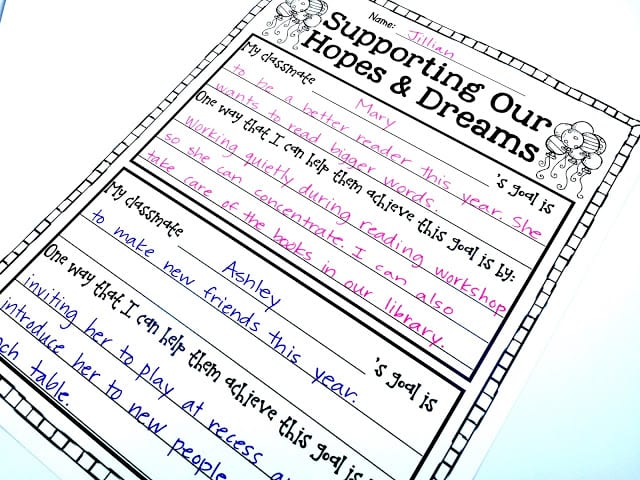 Name: Jillian
Supporting Our
Hopes & Dreams
My classmate Mary 's goal is
to be a better reader this year. She
wants to read bigger words.
One way that I can help them achieve this goal is by:
working quietly during reading workshop
so she can concentrate. I can also
take care of the books in our library.
My classmate Ashley 's goal is
to make new friends this year.
One way that I can help them achieve this goal is
inviting her to play at recess
introduce her to new people
table.